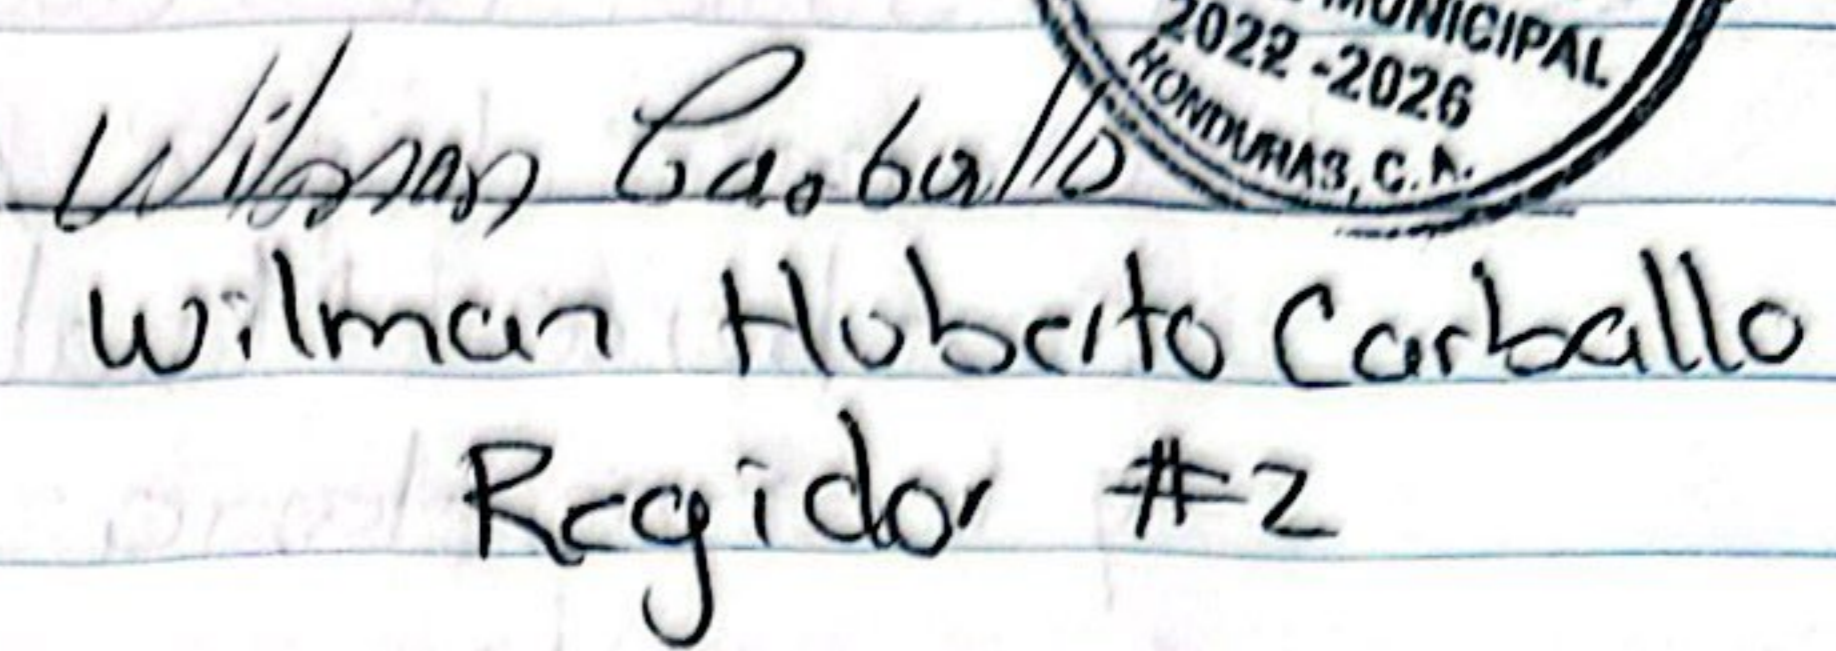 MUNICIPAL
2022-2026
HONDURAS, C.A.
Wilman Carballo
Wilman Huberto Carballo
Regidor #2